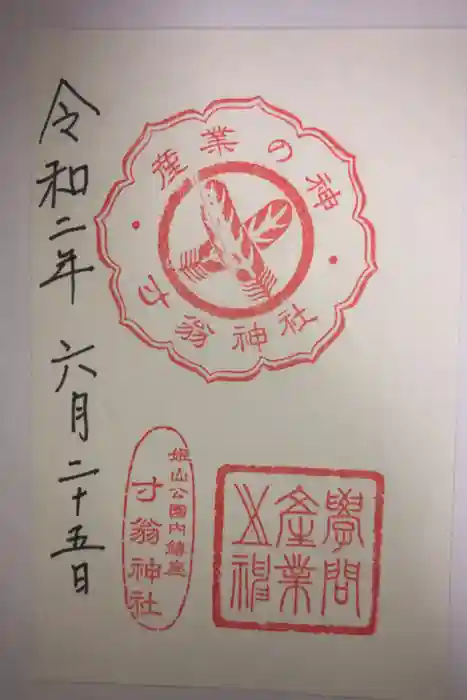 令和二年 六月二十五日
産業の神
寸翁神社
姫山公園内鎮座
寸翁神社
學問
産業
之神